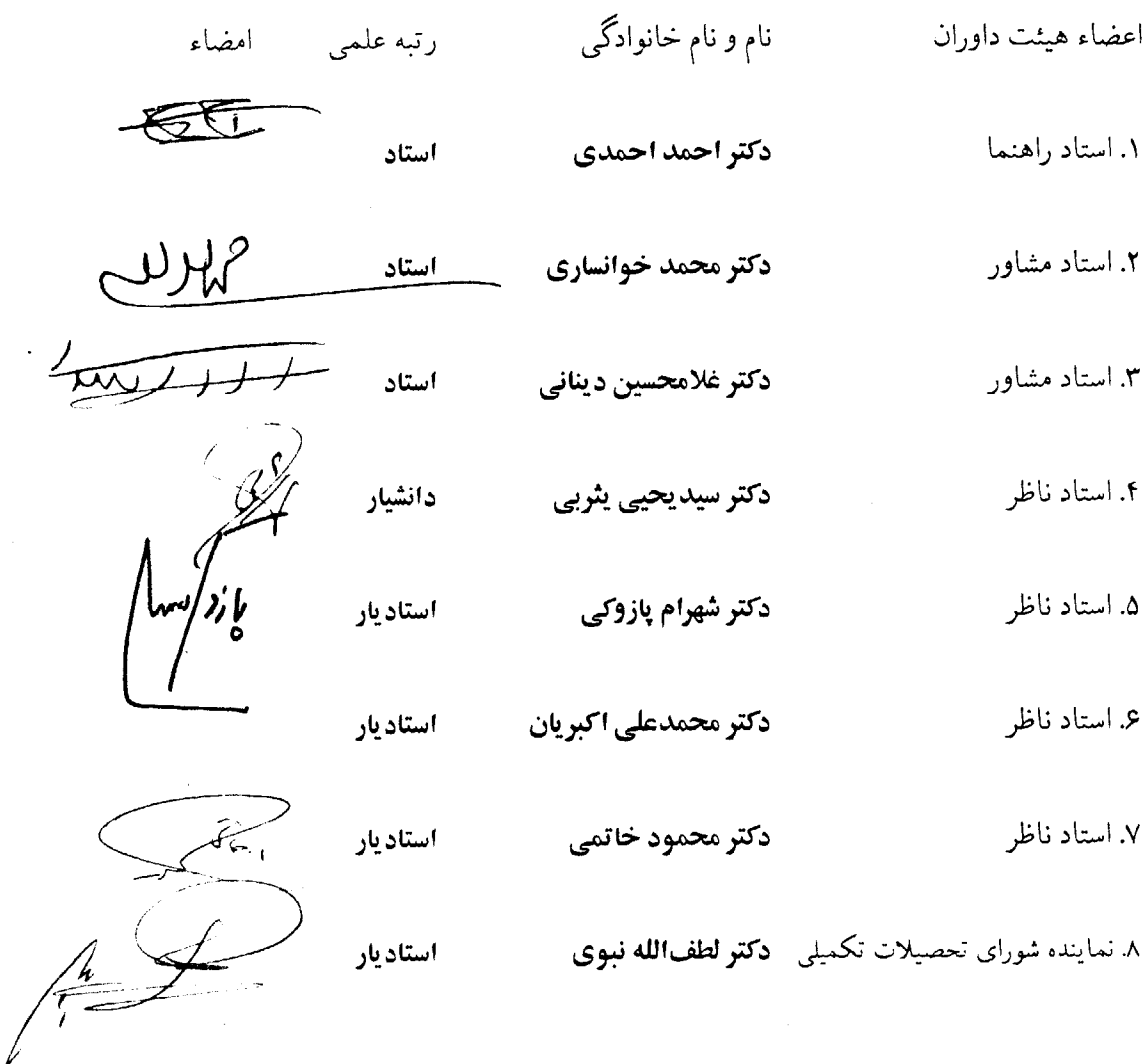 اعضاء هیئت داوران نام و نام خانوادگی رتبه علمی امضاء
۱. استاد راهنما دکتر احمد احمدی استاد
۲. استاد مشاور دکتر محمد خوانساری استاد
۳. استاد مشاور دکتر غلامحسین دینانی استاد
۴. استاد ناظر دکتر سیدیحیی یثربی دانشیار
۵. استاد ناظر دکتر شهرام پازوکی استادیار
۶. استاد ناظر دکتر محمدعلی اکبریان استادیار
۷. استاد ناظر دکتر محمود خاتمی استادیار
۸. نماینده شورای تحصیلات تکمیلی دکتر لطف‌الله نبوی استادیار